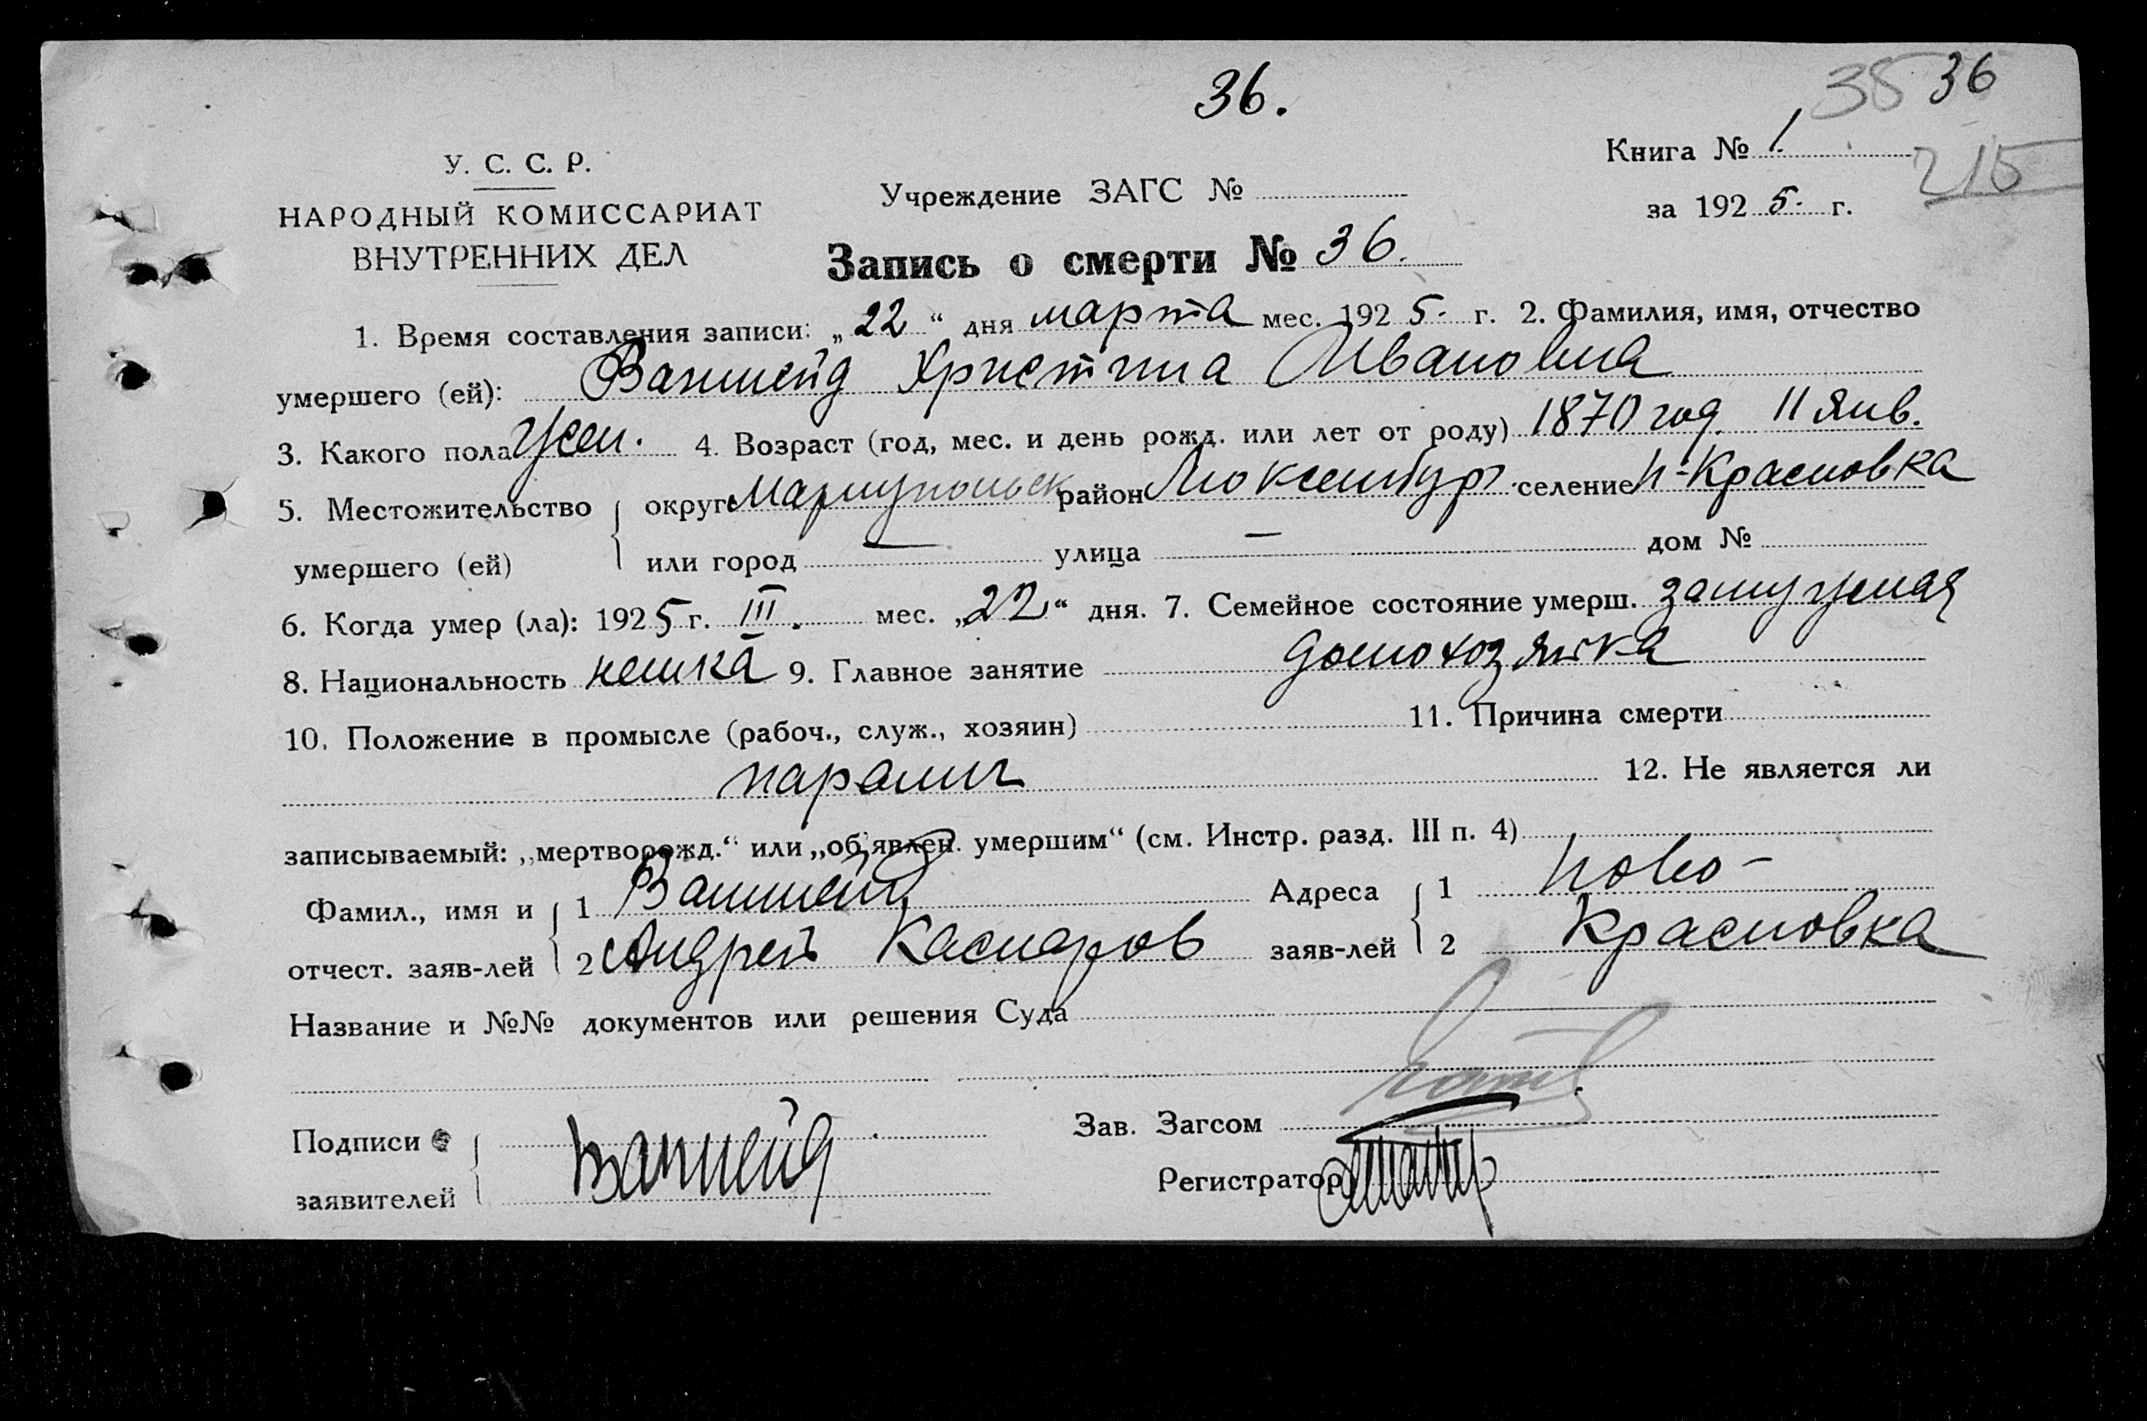 36.
35 36
У. С. С. Р.
НАРОДНЫЙ КОМИССАРИАТ
ВНУТРЕННИХ ДЕЛ
Учреждение ЗАГС №
Книга № 1.
215
за 1925. г.
Запись о смерти № 36.
1. Время составления записи: „22“ дня марта мес. 1925. г. 2. Фамилия, имя, отчество
умершего (ей): Ваншейд Христина Ивановна
3. Какого пола жен. 4. Возраст (год, мес. и день рожд. или лет от роду) 1870 год. 11 Янв.
5. Местожительство округ Мариупольск район Люксембург. селение Н-Красновка
умершего (ей) или город — улица — дом №
6. Когда умер (ла): 1925 г. III. мес. „22“ дня. 7. Семейное состояние умерш. замужная
8. Национальность немка 9. Главное занятие домохозяйка
10. Положение в промысле (рабоч., служ., хозяин) 11. Причина смерти
паралич 12. Не является ли
записываемый: „мертворожд.“ или „об‘явлен. умершим“ (см. Инстр. разд. III п. 4)
Фамил., имя и 1 Ваншейд Адреса 1 Ново-
отчест. заяв-лей 2 Андрей Каспаров заяв-лей 2 Красновка
Название и №№ документов или решения Суда
Подписи Ваншейд. Зав. Загсом
заявителей Регистратор